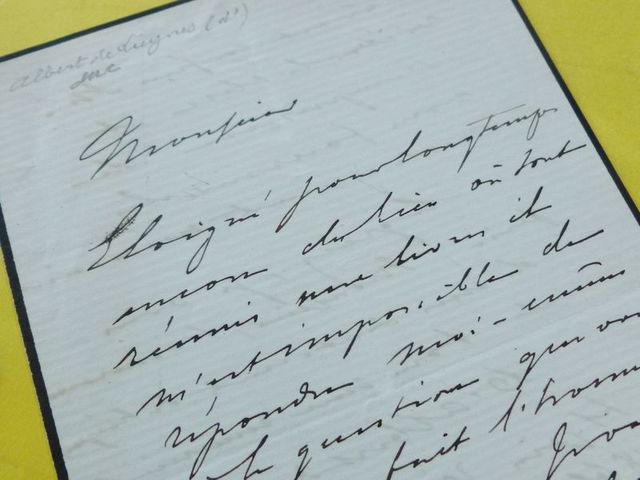 Albert de Luynes (d')
duc
Monsieur
Eloigné pour longtemps
encore du lieu où tout
réunis mes livres il
m'est impossible de
répondre moi-même
à la question que vous
fait l'honneur